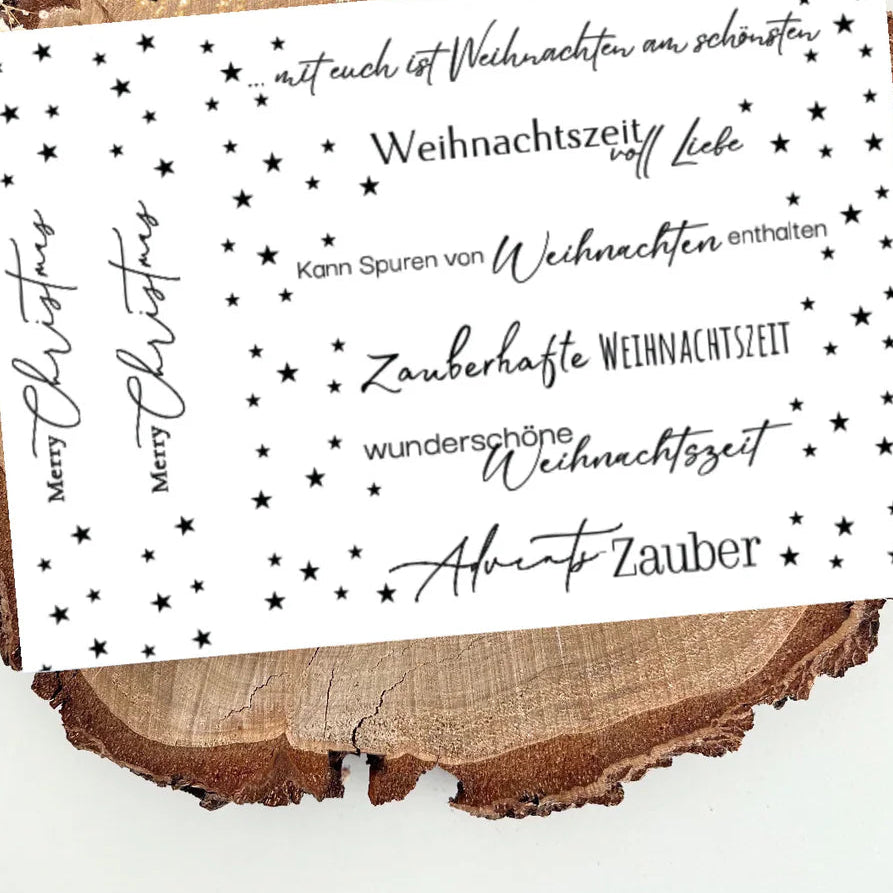 ... mit euch ist Weihnachten am schönsten
Weihnachtszeit voll Liebe
Kann Spuren von Weihnachten enthalten
Zauberhafte WEIHNACHTSZEIT
wunderschöne Weihnachtszeit
Advents Zauber
Merry Christmas
Merry Christmas